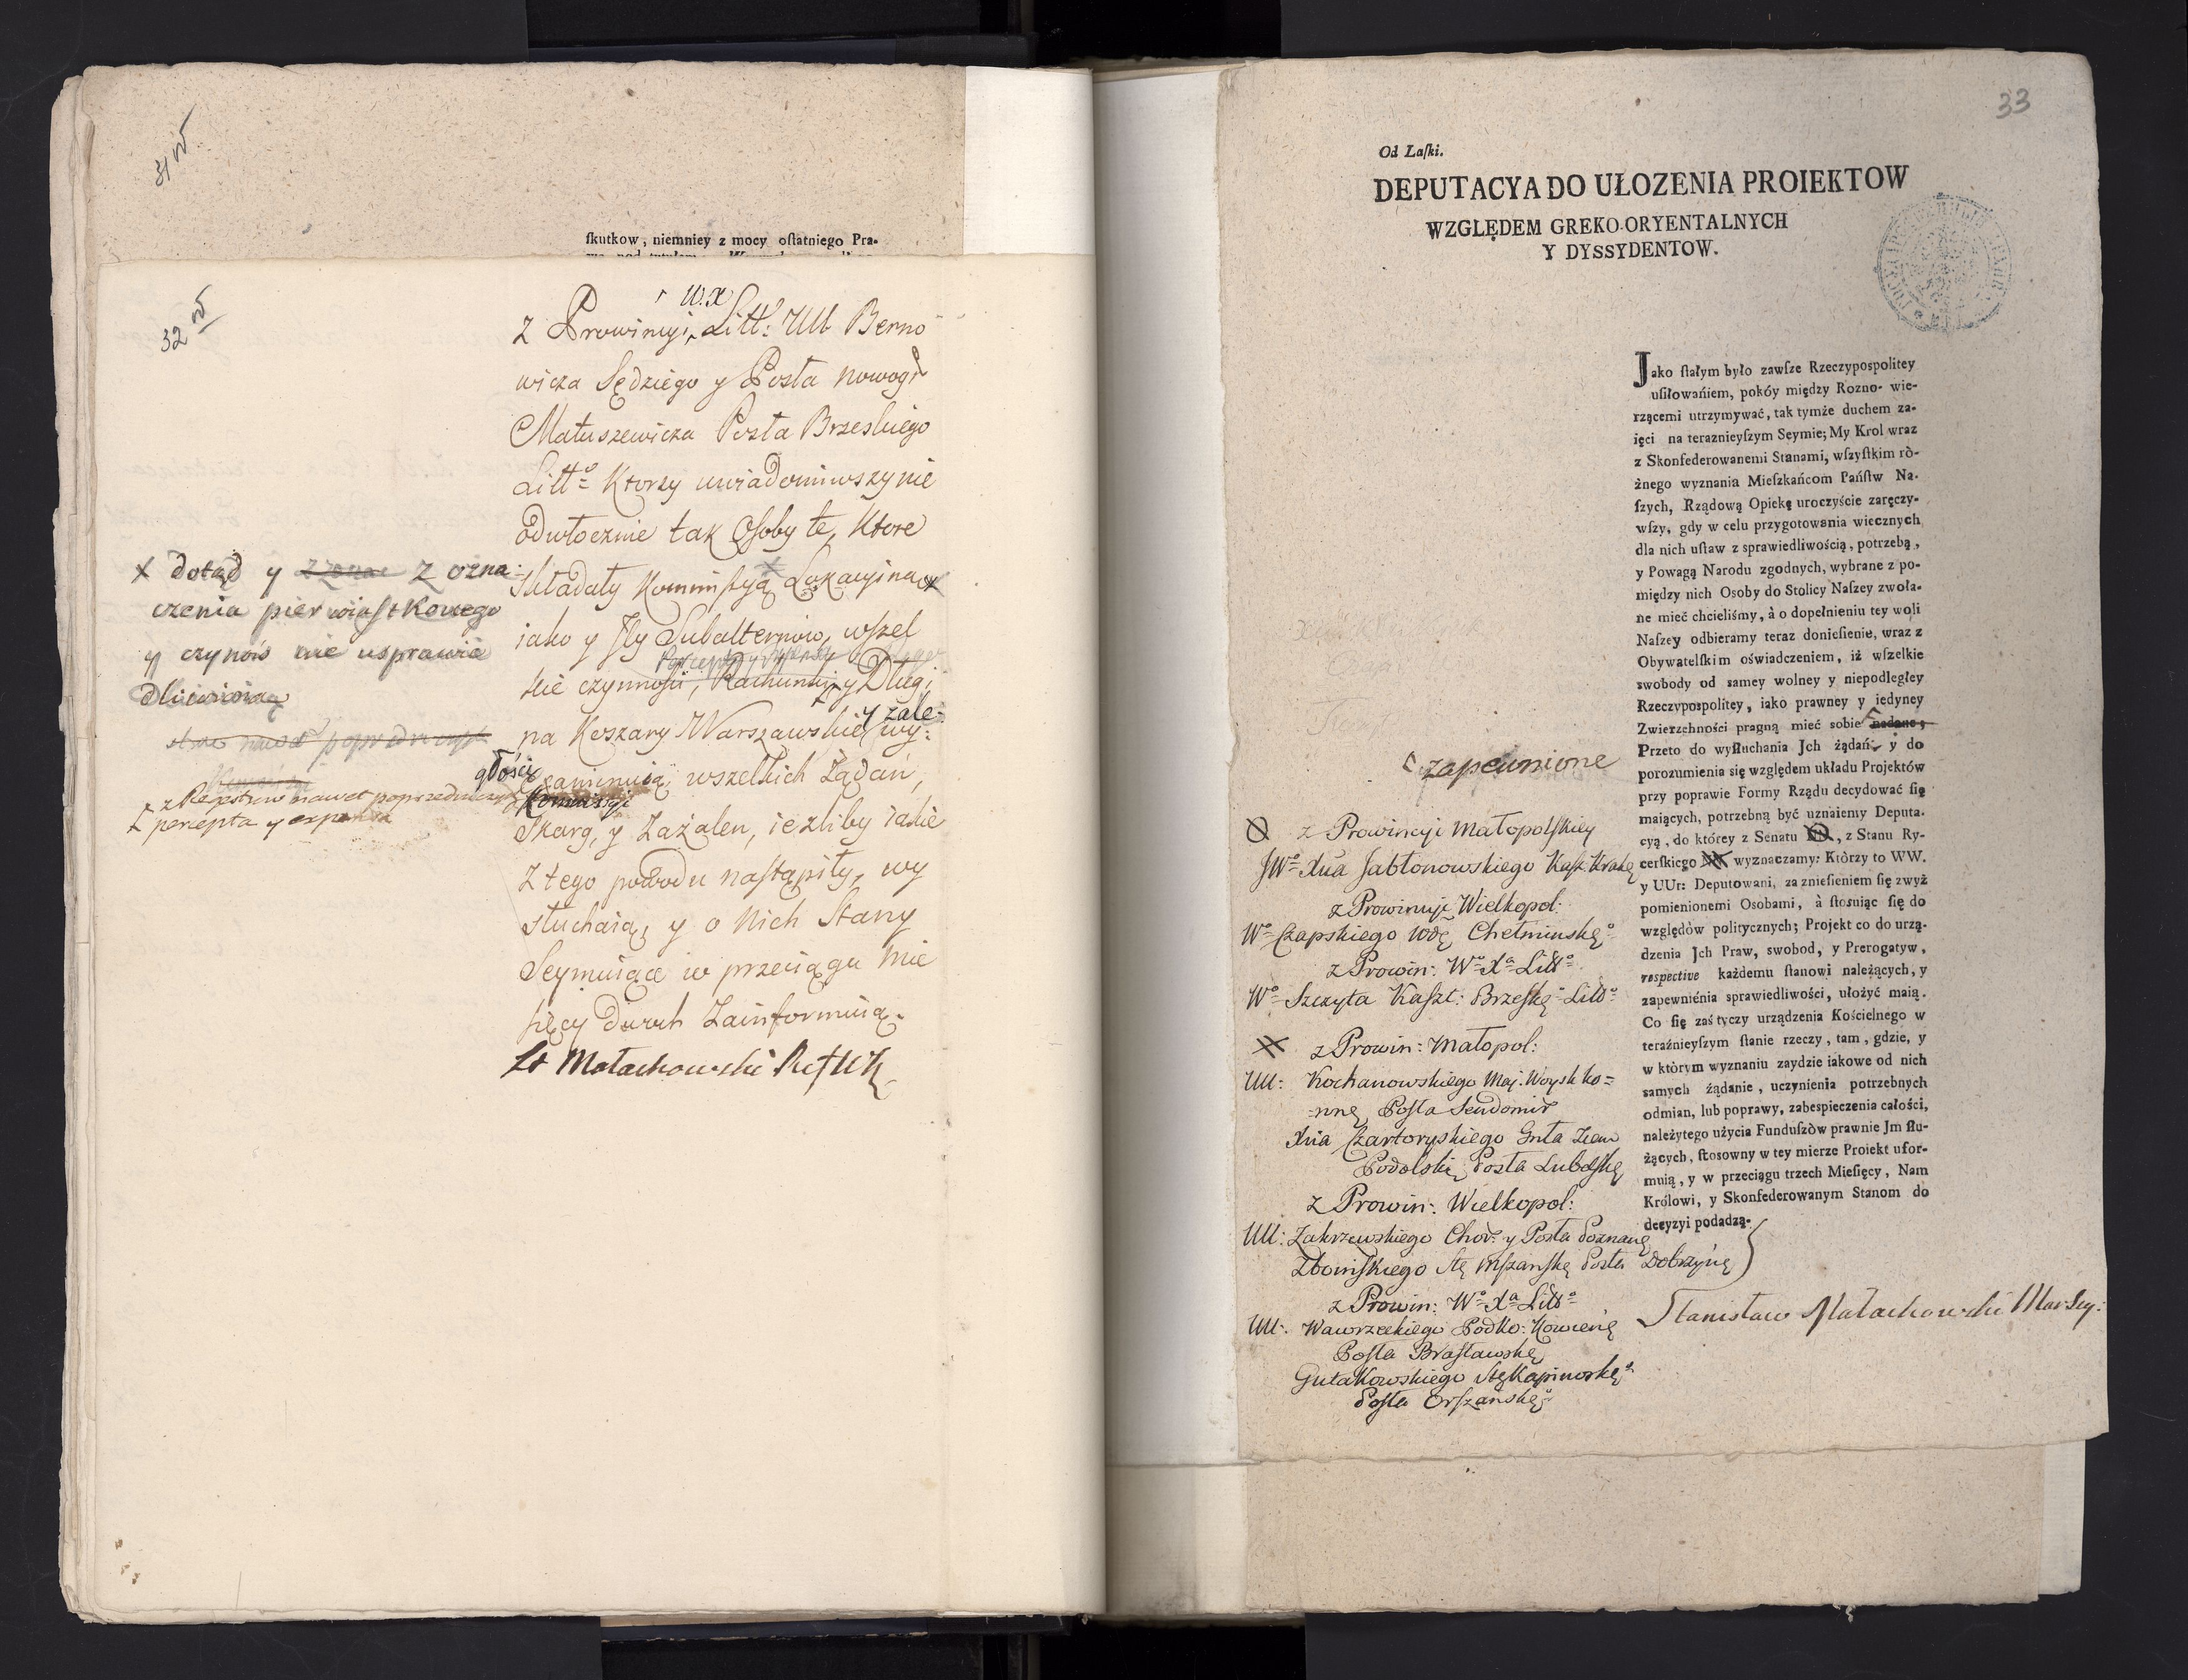 31 v
ſkutkow, niemniey z mocy oſtatniego Pra-
32 v
W. X
z Prowincyi Litt: UU Berno
wicza Sędziego y Posła Nowogr
Matuszewicza Posła Brzeskiego
Litt° Ktorzy uwiadomiwszy nie
odwłocznie tak Osoby te, Ktore
składały Kommiſsyą Lokacyiną
iako y Jey Subalternow, wſzel
kie czynnoſci, Rachunki y Długi
y zale-
na Koszary Warszawskie wy-
głości
examinuią, wszelkich Żądań,
Kommissyi
Skarg, y Zażalen, ieżliby iakie
z tego powodu naſtąpiły, wy
słuchaią, y o Nich Stany
Seymuiące w przeciągu Mie
sięcy dwuch Zainformuią.
St Małachowski
X dotąd y z ozna-
czenia pierwiaſtkowego
y czynów nie usprawie
dliwioną
z Rejestrów nawet poprzedniczych
percepta y expensa
33
Od Laſki.
DEPUTACYA DO UŁOZENIA PROIEKTOW
WZGLĘDEM GREKO-ORYENTALNYCH
Y DYSSYDENTOW.
Jako ſtałym było zawſze Rzeczypospolitey
uſiłowańiem, pokóy między Rozno- wie-
rzącemi utrzymywać, tak tymże duchem za-
ięci na teraznieyſzym Seymie; My Krol wraz
z Skonfederowanemi Stanami, wſzyſtkim rò-
żnego wyznania Mieſzkańcom Pańſtw Na-
ſzych, Rządową Opiekę uroczyście zaręczy-
wſzy, gdy w celu przygotowania wiecznych
dla nich uſtaw z sprawiedliwością, potrzebą,
y Powagą Narodu zgodnych, wybrane z po-
między nich Osoby do Stolicy Naſzey zwoła-
ne mieć chcieliśmy, à o dopełnieniu tey woli
Naſzey odbieramy teraz donieſienie, wraz z
Obywatelſkim oświadczeniem, iż wſzelkie
swobody od samey wolney y niepodległey
Rzeczypospolitey, iako prawney y iedyney
Zwierzchności pragną mieć sobie nadane;
Przeto do wyſłuchania Jch żądań y do
porozumienia się względem układu Projektów
przy poprawie Formy Rządu decydować ſię
maiących, potrzebną być uznaiemy Deputa-
cyą, do którey z Senatu NN, z Stanu Ry-
cerſkiego NN wyznaczamy: Którzy to WW.
y UUr: Deputowani, za znieſieniem ſię zwyż
pomienionemi Osobami, à ſtosuiąc ſię do
względów politycznych; Projekt co do urzą-
dzenia Jch Praw, swobod, y Prerogatyw,
respective każdemu ſtanowi należących, y
zapewniénia sprawiedliwości, ułożyć maią.
Co ſię zaś tyczy urządzenia Kościelnego w
teraźnieyſzym ſtanie rzeczy, tam, gdzie, y
w którym wyznaniu zaydzie iakowe od nich
samych żądanie, uczynienia potrzebnych
odmian, lub poprawy, zabespieczenia całości,
należytego użycia Funduſzòw prawnie Jm ſłu-
żących, ſtosowny w tey mierze Proiekt ufor-
muią, y w przeciągu trzech Mieſięcy, Nam
Królowi, y Skonfederowanym Stanom do
decyzyi podadzą.
zapewnione
z Prowincyi Małopolſkiey
JW° Xcia Jabłonowskiego Kaſzt. Krakę
z Prowincyi Wielkopol:
W° Czapskiego Wdę Chełminskę°
z Prowin: W° Xa Litt°
W° Szczyta Kaſzt: Brzeſkę° Litt°
z Prowin: Małopol:
UU: Kochanowskiego Maj. Woysk ko=
=nnę Poſła Sendomir
Xcia Czartoryskiego Gnła Ziem
Podolskię Posła Lubelſkę
z Prowin: Wielkopol:
UU: Zakrzewskiego Chor: y Posła Poznanę
Zboinſkiego Stę Mſzanſkę Posła Dobrzynę
z Prowin: W° Xa Litt°
UU: Wawrzeckiego Podko: Kowienę
Poſła Braſławskę
Gutakowskiego Stę Kapinoskę°
Poſła Orſzanskę°
Stanisław Małachowski Mar Sey: